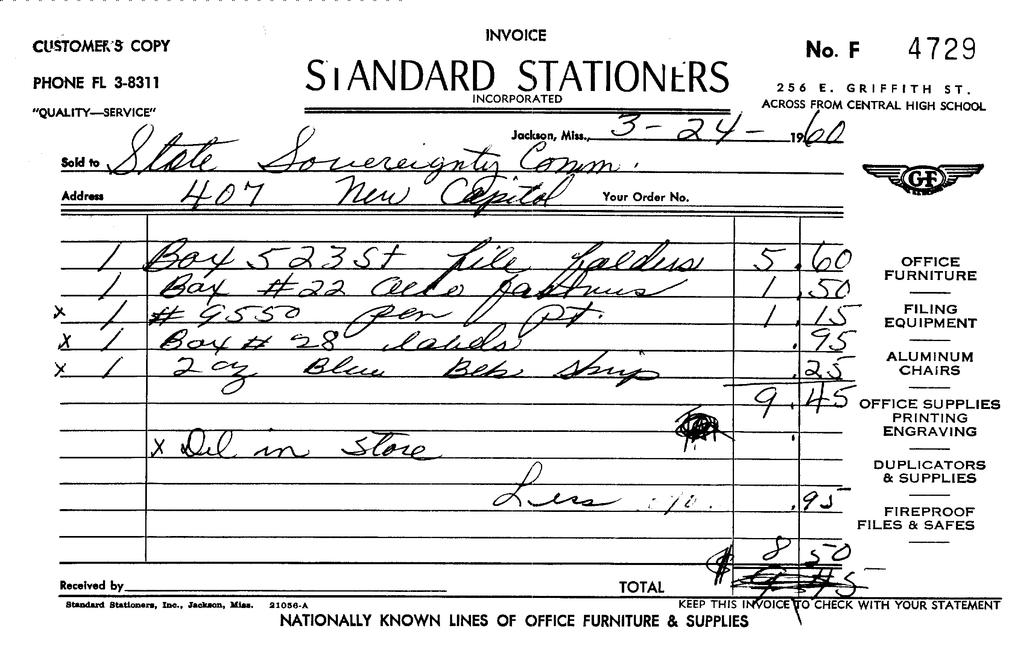 INVOICE
CUSTOMER'S COPY
No. F 4729
PHONE FL 3-8311
STANDARD STATIONERS
INCORPORATED
"QUALITY—SERVICE"
256 E. GRIFFITH ST.
ACROSS FROM CENTRAL HIGH SCHOOL
Jackson, Miss., 3-24- 1960
Sold to State Sovereignty Comm.
Address 407 New Capitol Your Order No.
GF
1 Box 523 St file folders 5.60
1 Box #22 Acco fastners 1.50
x 1 #9550 pen pt. 1.15
x 1 Box #28 labels .95
x 1 2 oz Blue 25
9.45
x Del in store
Less .95
8 50
Received by
TOTAL $
OFFICE
FURNITURE
FILING
EQUIPMENT
ALUMINUM
CHAIRS
OFFICE SUPPLIES
PRINTING
ENGRAVING
DUPLICATORS
& SUPPLIES
FIREPROOF
FILES & SAFES
Standard Stationers, Inc., Jackson, Miss. 21056-A
KEEP THIS INVOICE TO CHECK WITH YOUR STATEMENT
NATIONALLY KNOWN LINES OF OFFICE FURNITURE & SUPPLIES